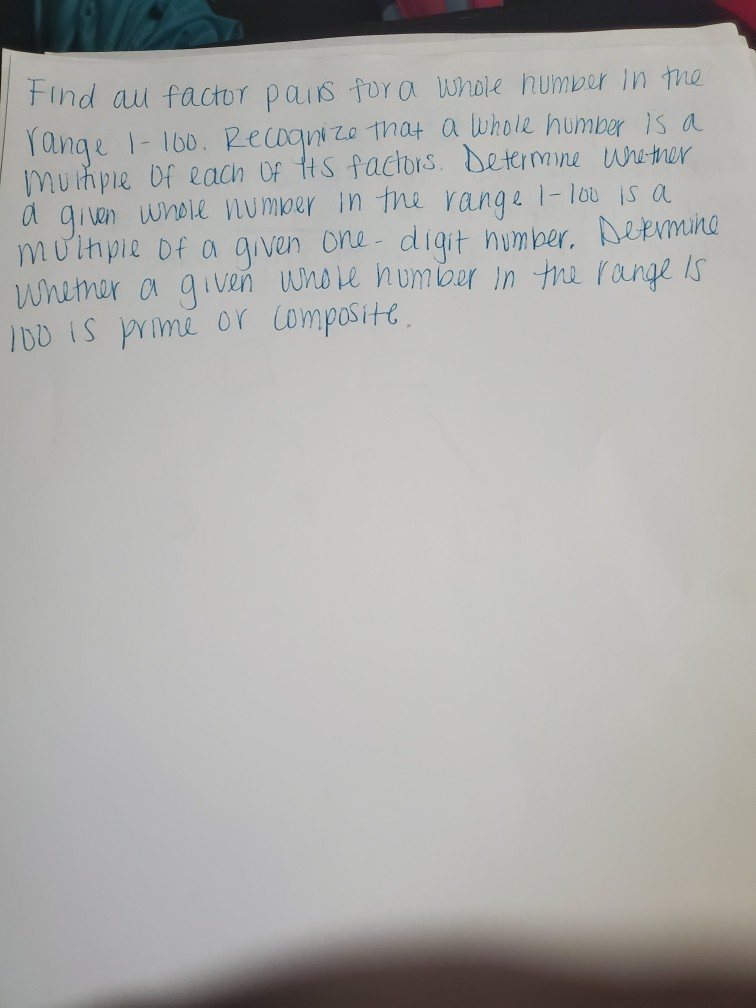 Find all factor pairs for a whole number in the
range 1-100. Recognize that a whole number is a
multiple of each of its factors. Determine whether
a given whole number in the range 1-100 is a
multiple of a given one-digit number. Determine
whether a given whole number in the range is
100 is prime or composite.